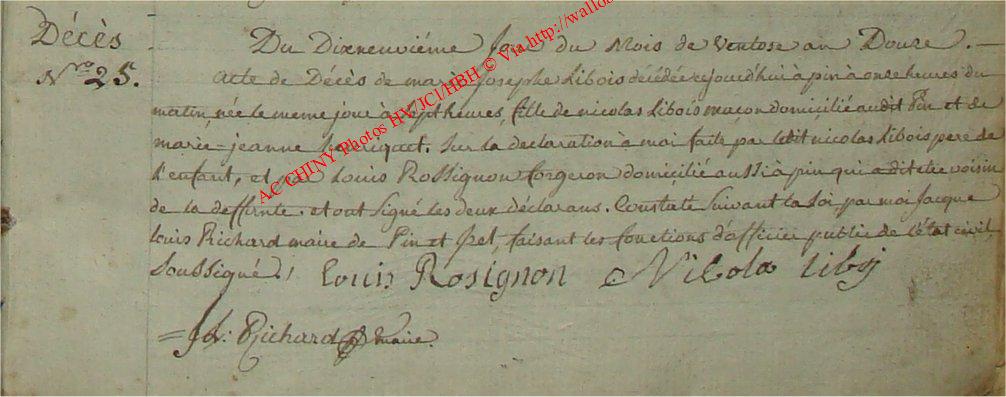 Décès
Nro 25.
Du Dixneuviéme Jour du Mois de Ventose an Douze.
Acte de Décès de marie josephe Libois décédée cejourd'hui à pin à onze heures du
matin née le meme jour à sept heures, fille de nicolas Libois maçon domicilié audit Pin et de
marie-jeanne henriquet. Sur la declaration à moi faite par ledit nicolas Libois pere de
l'enfant, et par Louis Rossignon forgeron domicilié aussi à pin qui a dit etre voisin
de la deffunte. et ont signé les deux déclarans. Constaté suivant la loi par moi Jacque
Louis Richard maire de Pin et Izel, faisant les fonctions d'officier public de l'état civil
Soussigné.
Louis Rosignon Nicolas liboj
J L: Richard maire.
AC CHINY Photos HV/JCl/HBH © Via http://wallo